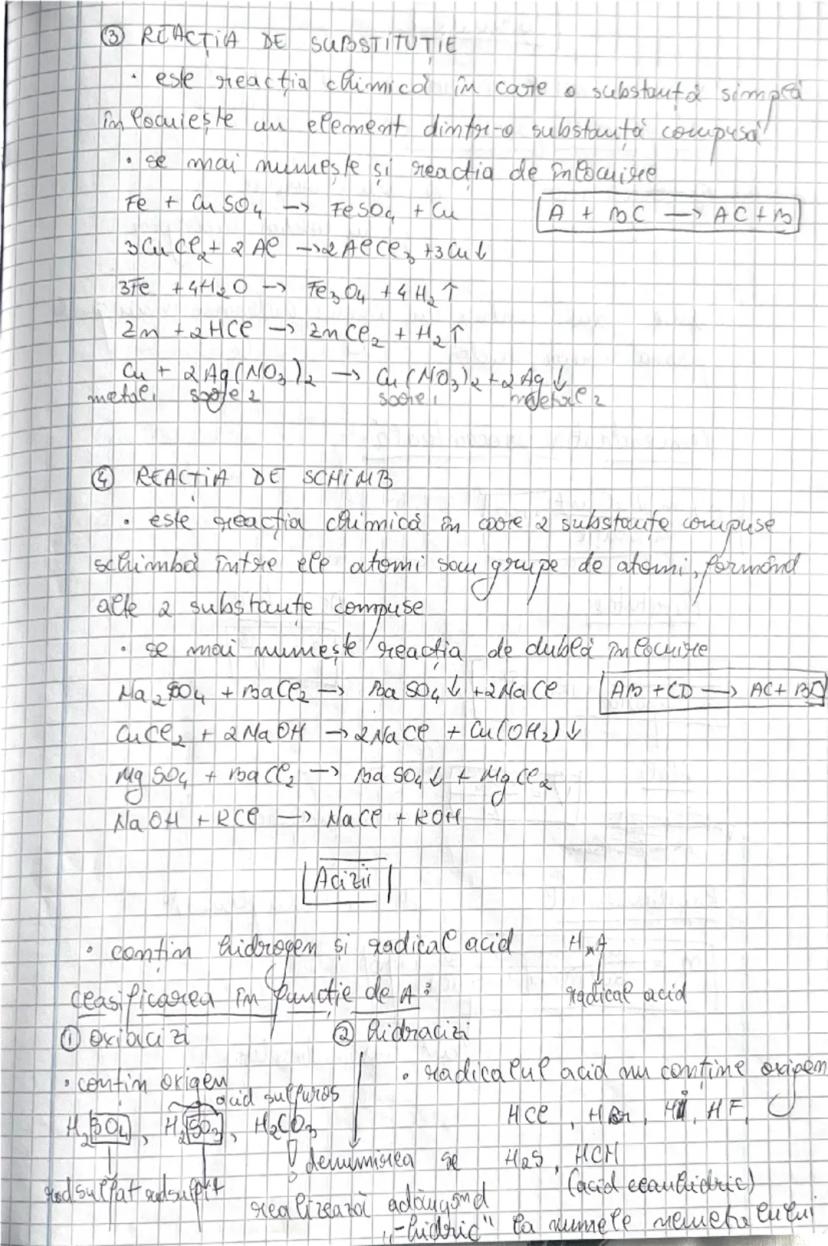 ③ REACȚIA DE SUBSTITUȚIE
• este reacția chimică în care o substanță simplă
înlocuiește un element dintr-o substanță compusă
• se mai numește și reacția de înlocuire
Fe + CuSO₄ → FeSO₄ + Cu
A + BC → AC + B
3CuCl₂ + 2Al → 2AlCl₃ + 3Cu↓
3Fe + 4H₂O → Fe₃O₄ + 4H₂↑
Zn + 2HCl → ZnCl₂ + H₂↑
Cu + 2Ag(NO₃)₂ → Cu(NO₃)₂ + 2Ag↓
metal₁ sare₂ sare₁ metal₂
④ REACȚIA DE SCHIMB
• este reacția chimică în care 2 substanțe compuse
schimbă între ele atomi sau grupe de atomi, formând
alte 2 substanțe compuse
• se mai numește reacția de dublă înlocuire
Na₂SO₄ + BaCl₂ → BaSO₄↓ + 2NaCl
AB + CD → AC + BD
CuCl₂ + 2NaOH → 2NaCl + Cu(OH₂)↓
MgSO₄ + BaCl₂ → BaSO₄↓ + MgCl₂
NaOH + KCl → NaCl + KOH
Acizii
• conțin hidrogen și radical acid HₙA
radical acid
clasificarea în funcție de A:
① oxiacizi ② hidracizi
• conțin oxigen • radicalul acid nu conține oxigen
acid sulfuros
HCl, HBr, HI, HF,
H₂SO₄, H₂SO₃, H₂CO₃
! denumirea se H₂S, HCN
rad sulfat rad sulfit
(acid cianhidric)
realizează adăugând
„-hidric" la numele nemetalului